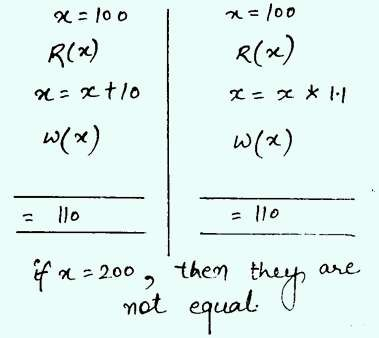 x = 100
R(x)
x = x + 10
W(x)
= 110
x = 100
R(x)
x = x * 1.1
W(x)
= 110
if x = 200, then they are
not equal.